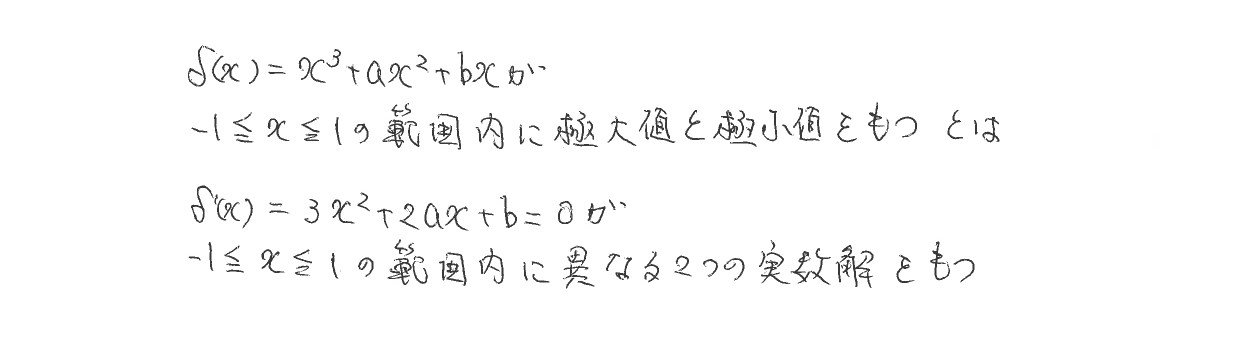 f(x) = x³+ax²+bx が
-1≦x≦1の範囲内に極大値と極小値をもつ とは
f'(x) = 3x²+2ax+b=0が
-1≦x≦1の範囲内に異なる2つの実数解をもつ